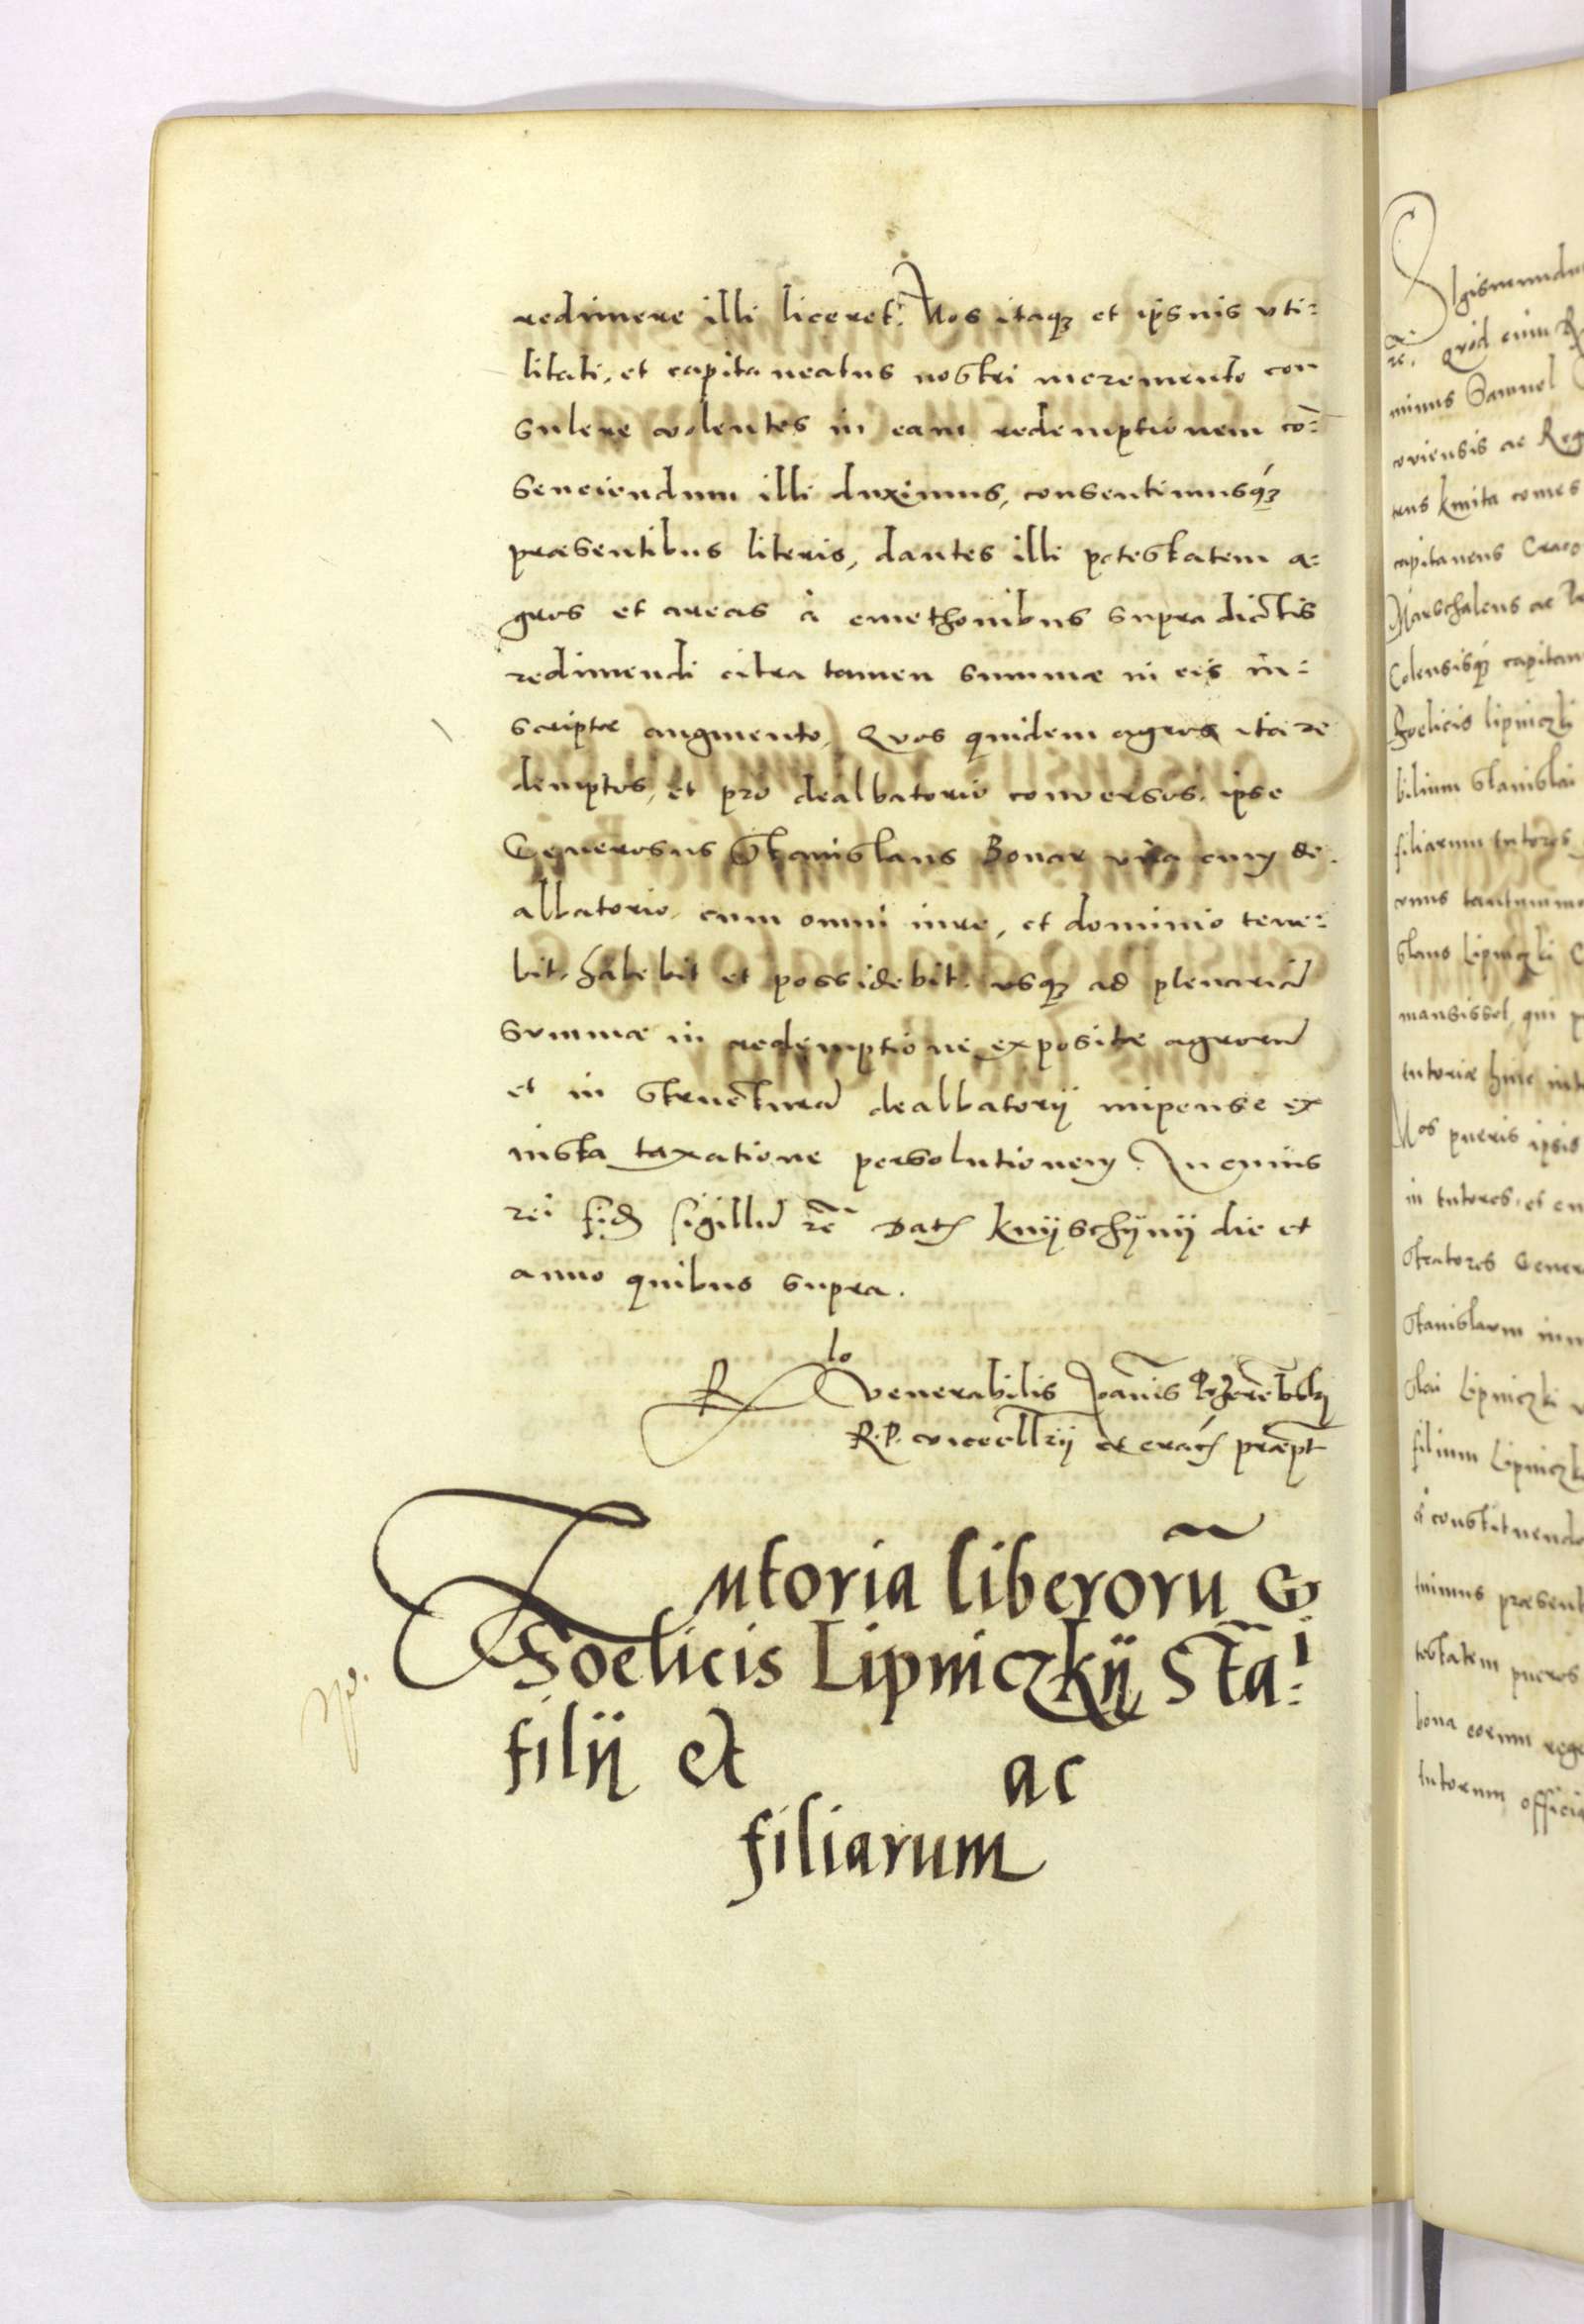 redimere illi liceret. Nos itaqꝫ et ipsius vti:
litati, et capitaneatus nostri incremento con
sulere volentes in eam redemptionem cō:
senciendum illi duximus, consentimusqꝫ
præsentibus literis, dantes illi potestatem a:
gros et areas à cmethonibus supra dictis
redimendi citra tamen summæ in eis in:
scriptæ augmento, Quos quidem agros ita re
demptos, et pro dealbatorio conversos, ipse
Generosus Stanislaus Bonar vna cum de:
albatorio, cum omni iure, et dominio tene:
bit, habebit et possidebit, vsqꝫ ad plenariā
summæ in redemptione expositæ agrorū
et in structurā dealbatorij impense ex
iusta taxatione persolutionem. In cuius
rei fid sigillū rē Dat Knyschynij die et
anno quibus supra.
Rlo venerabilis Joannis
R. P. vicecllrij et crac præpt
Tutoria liberorū G
Foelicis Lipniczkij Sta:
filij et ac
filiarum
Sigismundu
rē. Quod cum
minus Samuel
coviensis ac Reg
trus Kmita comes
capitaneus Craco
Marschalcus ac
Colensisqꝫ capitan
Foelicis Lipniczki
bilium Stanislai
filiarum tutores
vnus tantummo
slaus Lipniczki
mansisset, qui
tutoriæ huic
Nos pueris ipsis
in tutores, et
stratores Gener
Stanislaum
slai Lipniczki
filium Lipniczk
constituendo
tuimus præsent
testatem pueros
bona eorum rege
tutorum officia